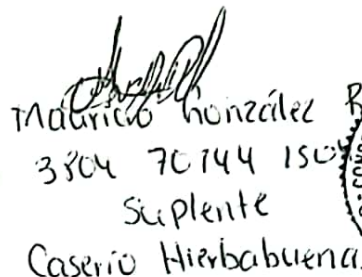 Mauricio González R
3804 70744 1504
Suplente
Caserio Hierbabuena